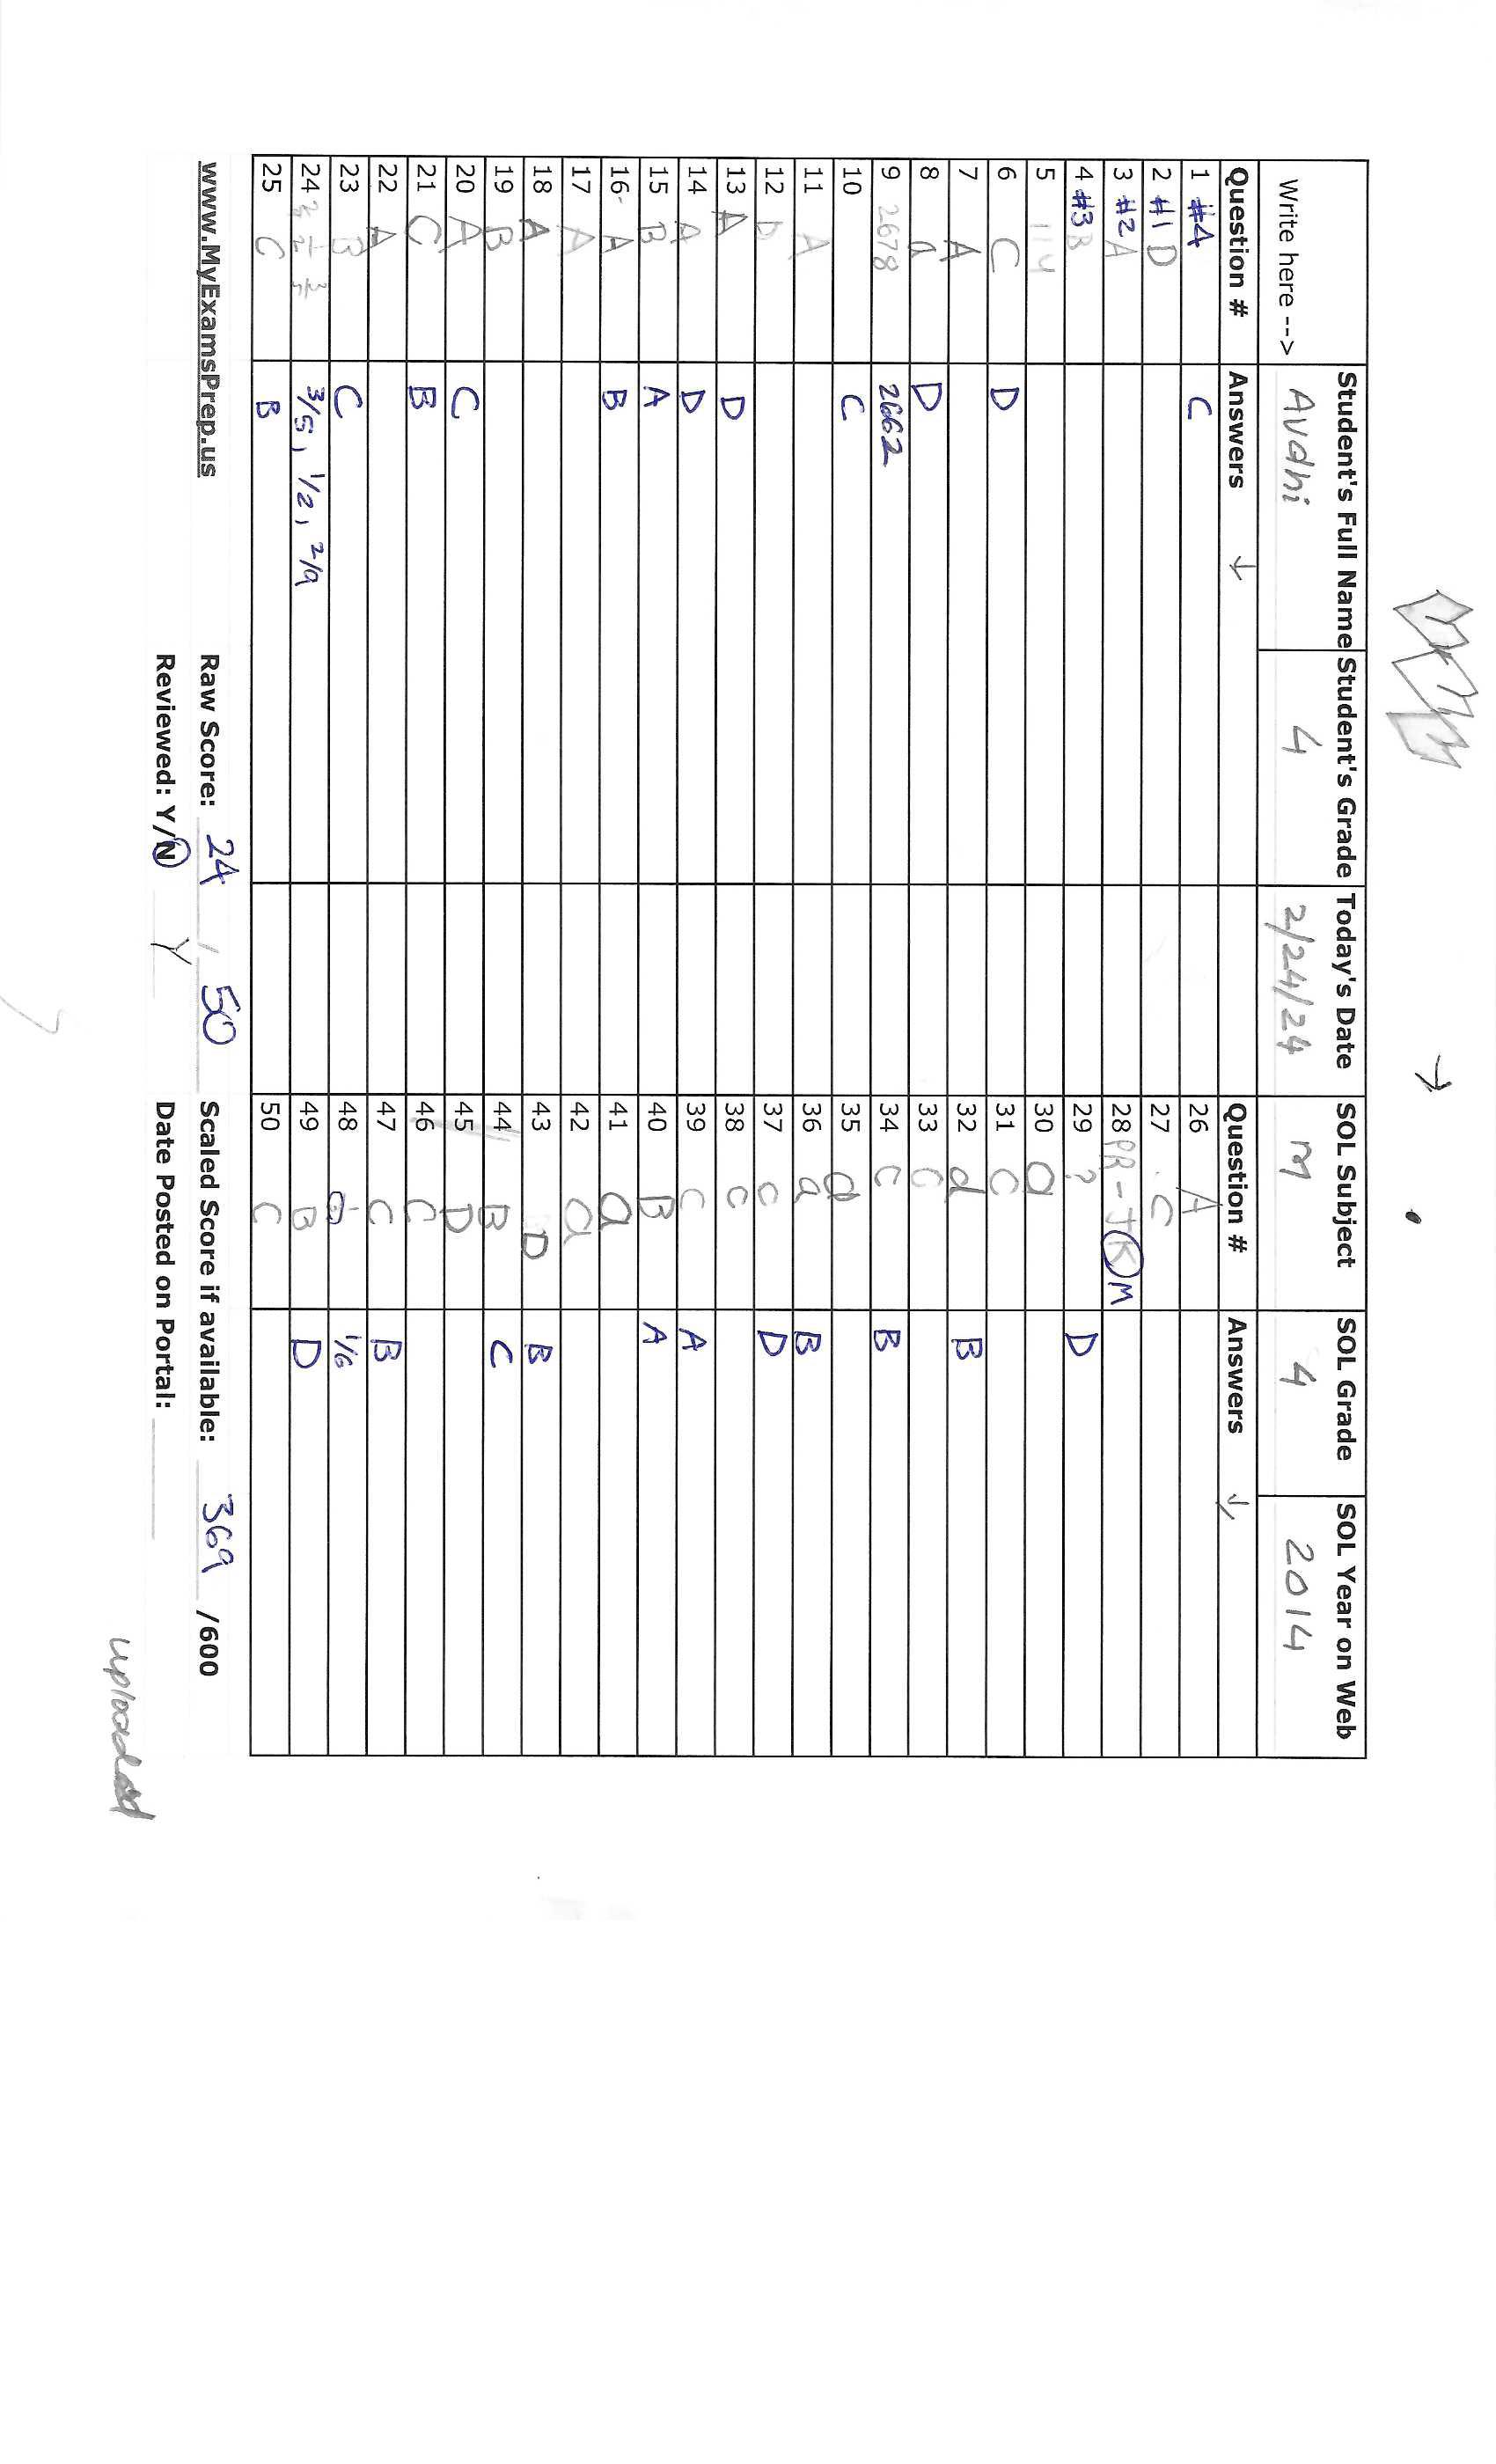 Student's Full Name Student's Grade Today's Date SOL Subject SOL Grade SOL Year on Web
Write here --> Avdhi 4 2/24/24 M 4 2014
Question # Answers ↓ Question # Answers ↓
1 #4 C 26 A
2 #1 D 27 C
3 #2 A 28 PR-JKM
4 #3 B 29 ? D
5 114 30 a
6 C D 31 C
7 A 32 d B
8 a D 33 C
9 2678 2662 34 C B
10 C 35 a
11 A 36 a B
12 D 37 C D
13 A D 38 C
14 A D 39 C A
15 B A 40 B A
16 A B 41 a
17 A 42 a
18 A 43 D B
19 B 44 B C
20 A C 45 D
21 C B 46 C
22 A 47 C B
23 B C 48 1/6
24 3/5, 1/2, 2/9 49 B D
25 C B 50 C
www.MyExamsPrep.us Raw Score: 24 / 50 Scaled Score if available: 369 /600
Reviewed: Y/N Y Date Posted on Portal:
uploaded